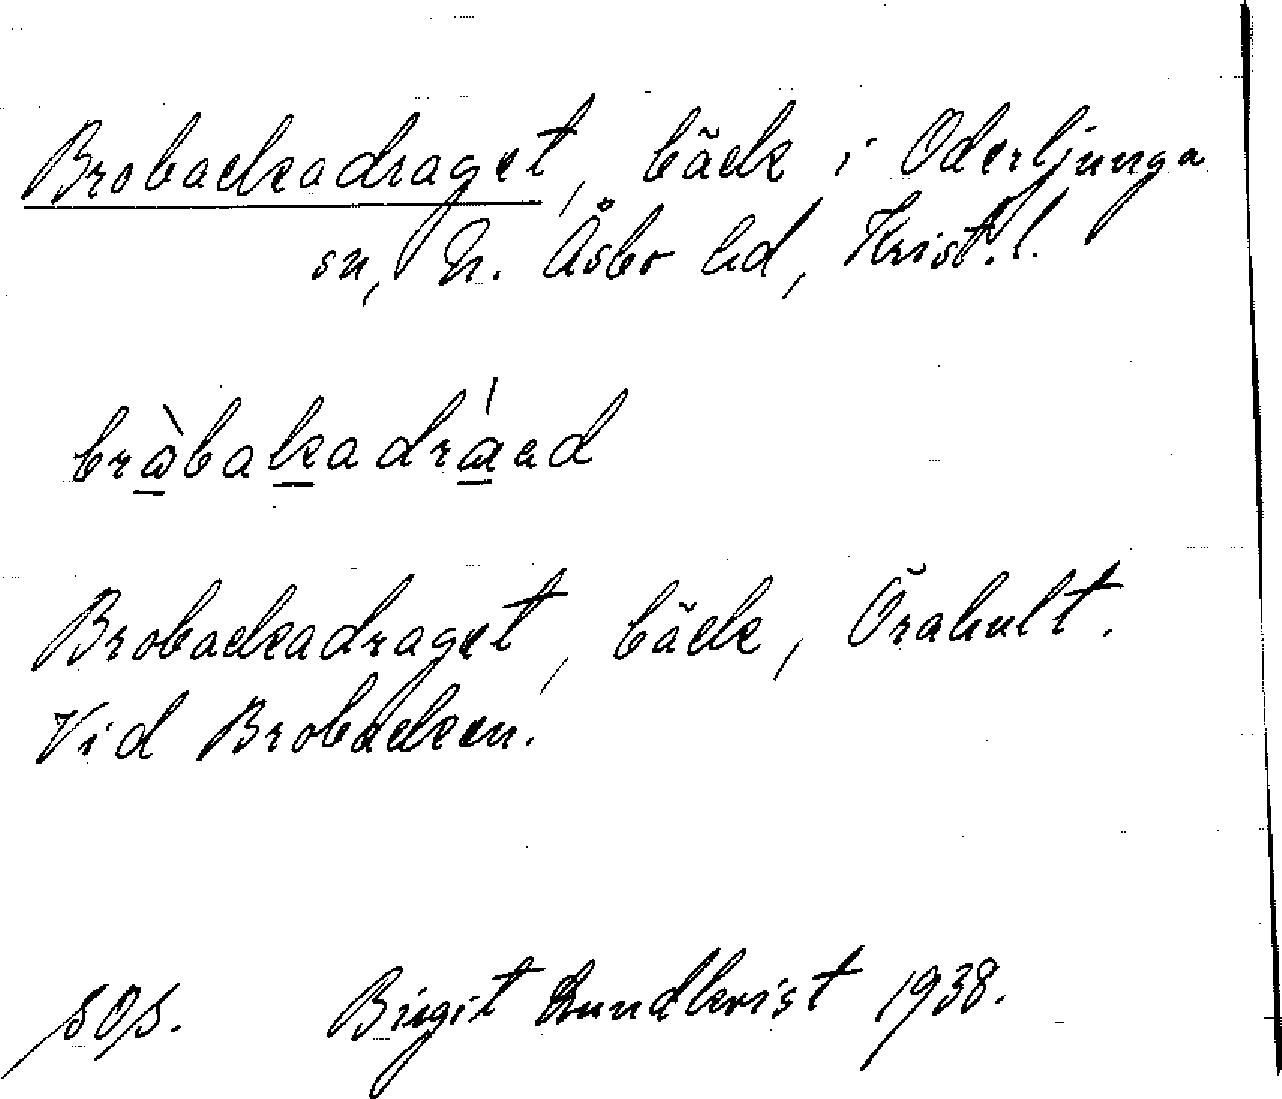 Brobackadraget, bäck i Oderljunga
sn, N. Åsbo hd, Krist. l.
bràbakadráad
Brobackadraget, bäck, Örahult.
Vid Brobacken.
SOS. Birgit Lundkvist 1938.